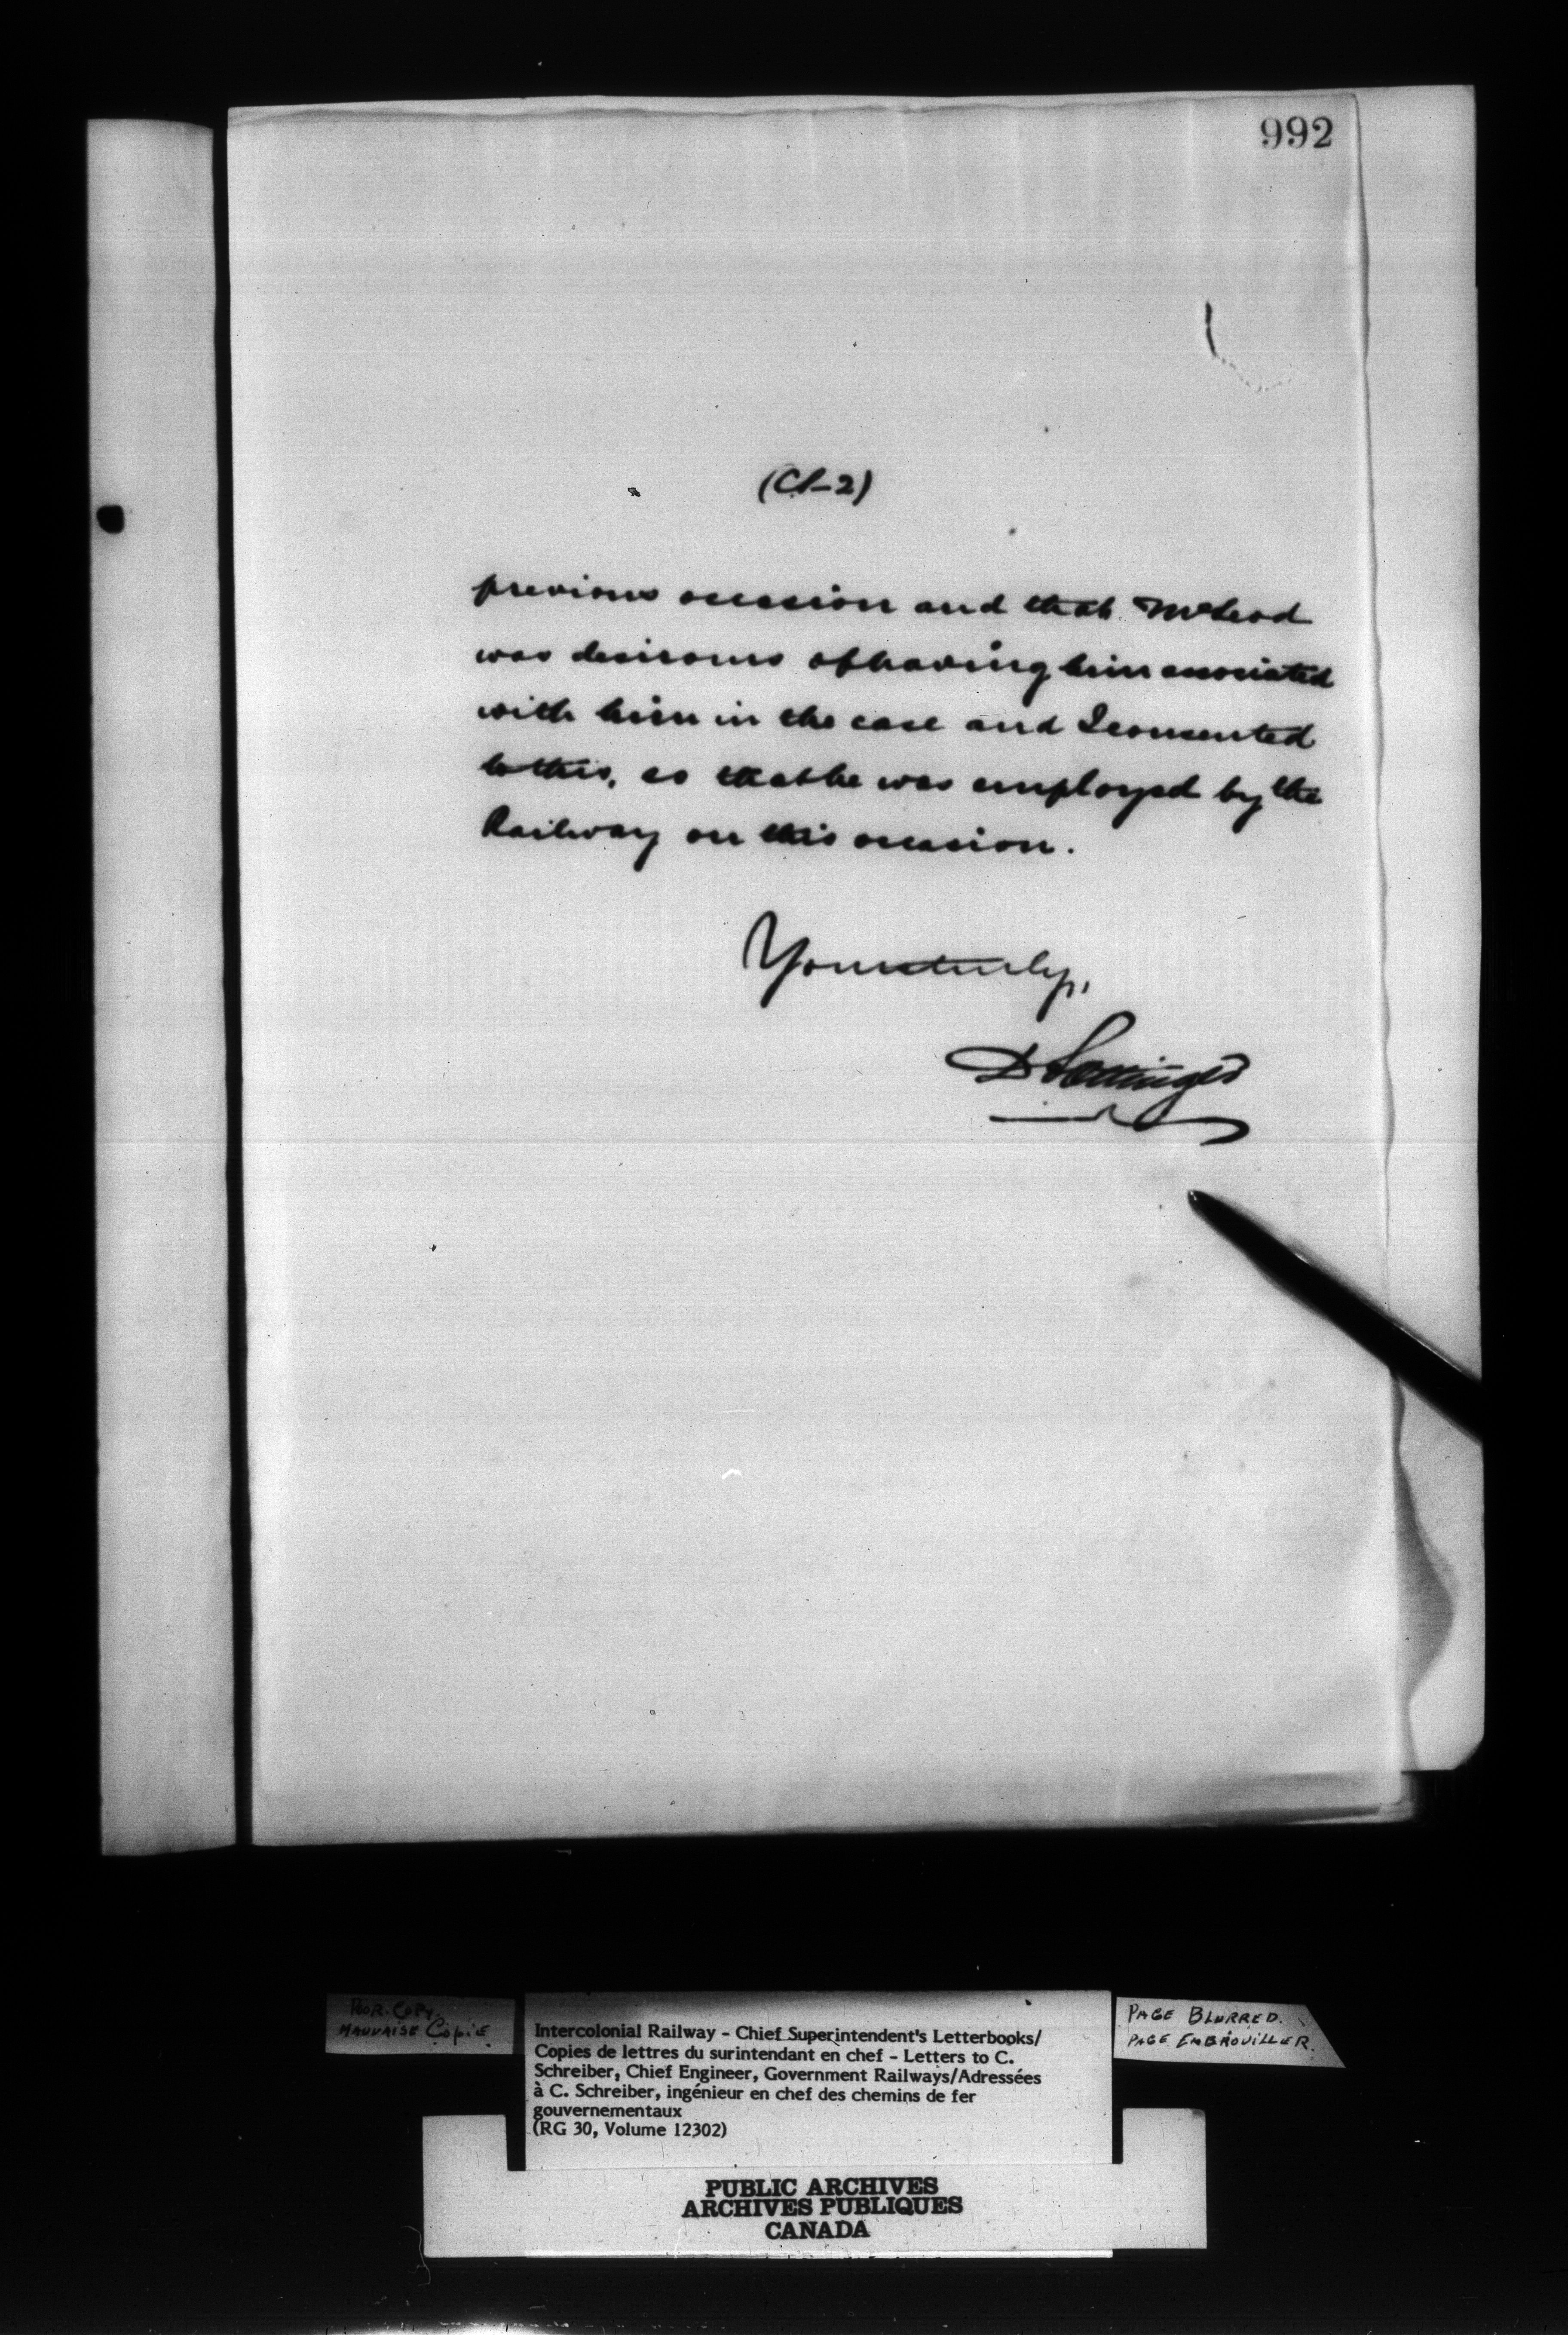 992
(Cl-2)
previous occasion and that McLeod
was desirous of having him associated
with him in the case and I consented
to this, so that he was employed by the
Railway on this occasion.
Yours truly,
D Pottinger
POOR COPY.
MAUVAISE COPIE
Intercolonial Railway - Chief Superintendent's Letterbooks/
Copies de lettres du surintendant en chef - Letters to C.
Schreiber, Chief Engineer, Government Railways/Adressées
à C. Schreiber, ingénieur en chef des chemins de fer
gouvernementaux
(RG 30, Volume 12302)
PAGE BLURRED.
PAGE EMBROUILLER.
PUBLIC ARCHIVES
ARCHIVES PUBLIQUES
CANADA